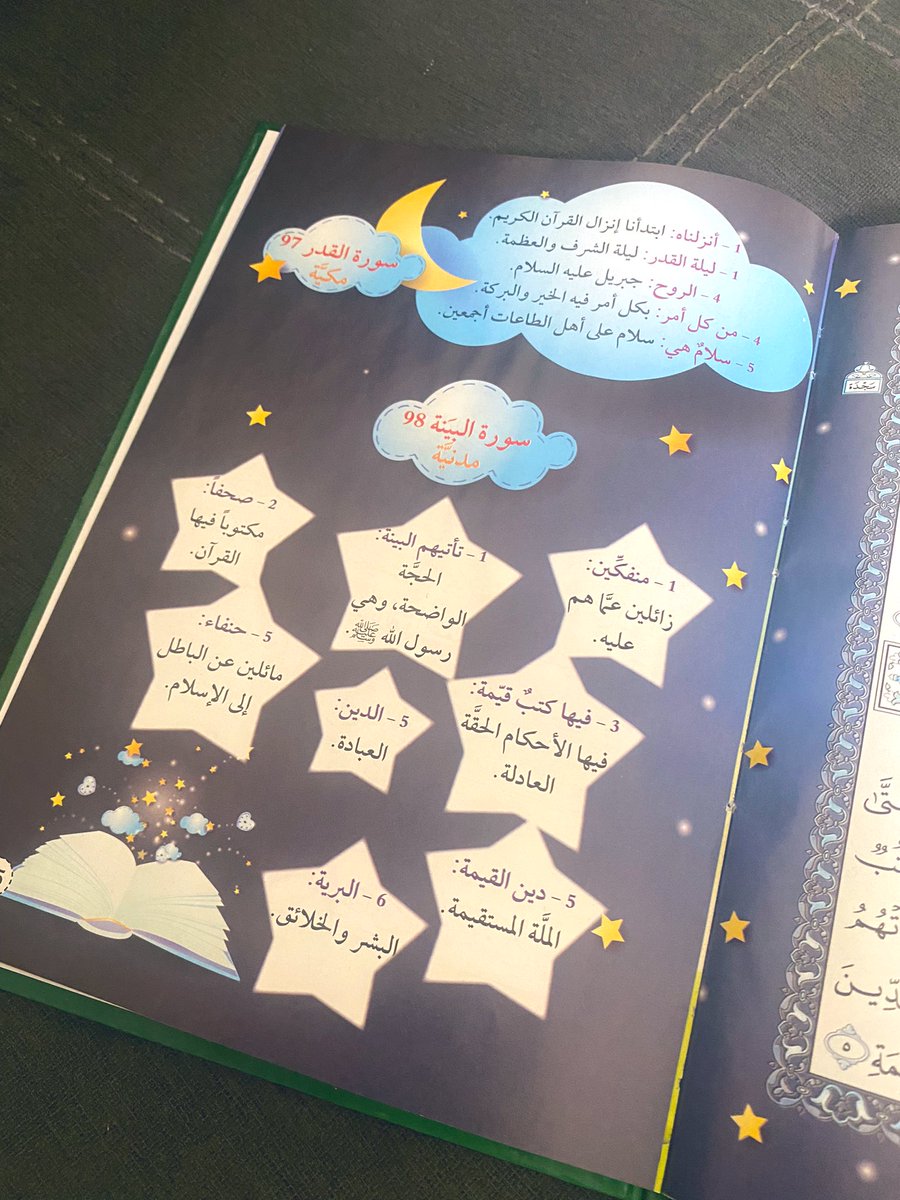 سورة القدر 97
مكيَّة
1 - أنزلناه: ابتدأنا إنزال القرآن الكريم.
1 - ليلة القدر: ليلة الشرف والعظمة.
4 - الروح: جبريل عليه السلام.
4 - من كل أمر: بكل أمر فيه الخير والبركة.
5 - سلامٌ هي: سلام على أهل الطاعات أجمعين.
سورة البيَنة 98
مدنيَّة
1 - منفكِّين:
زائلين عمَّا هم
عليه.
1 - تأتيهم البينة:
الحجَّة
الواضحة، وهي
رسول الله ﷺ.
2 - صحفاً:
مكتوباً فيها
القرآن.
3 - فيها كتبٌ قيّمة:
فيها الأحكام الحقَّة
العادلة.
5 - الدين:
العبادة.
5 - حنفاء:
مائلين عن الباطل
إلى الإسلام.
5 - دين القيمة:
الملَّة المستقيمة.
6 - البرية:
البشر والخلائق.
سَجْدَة
٥